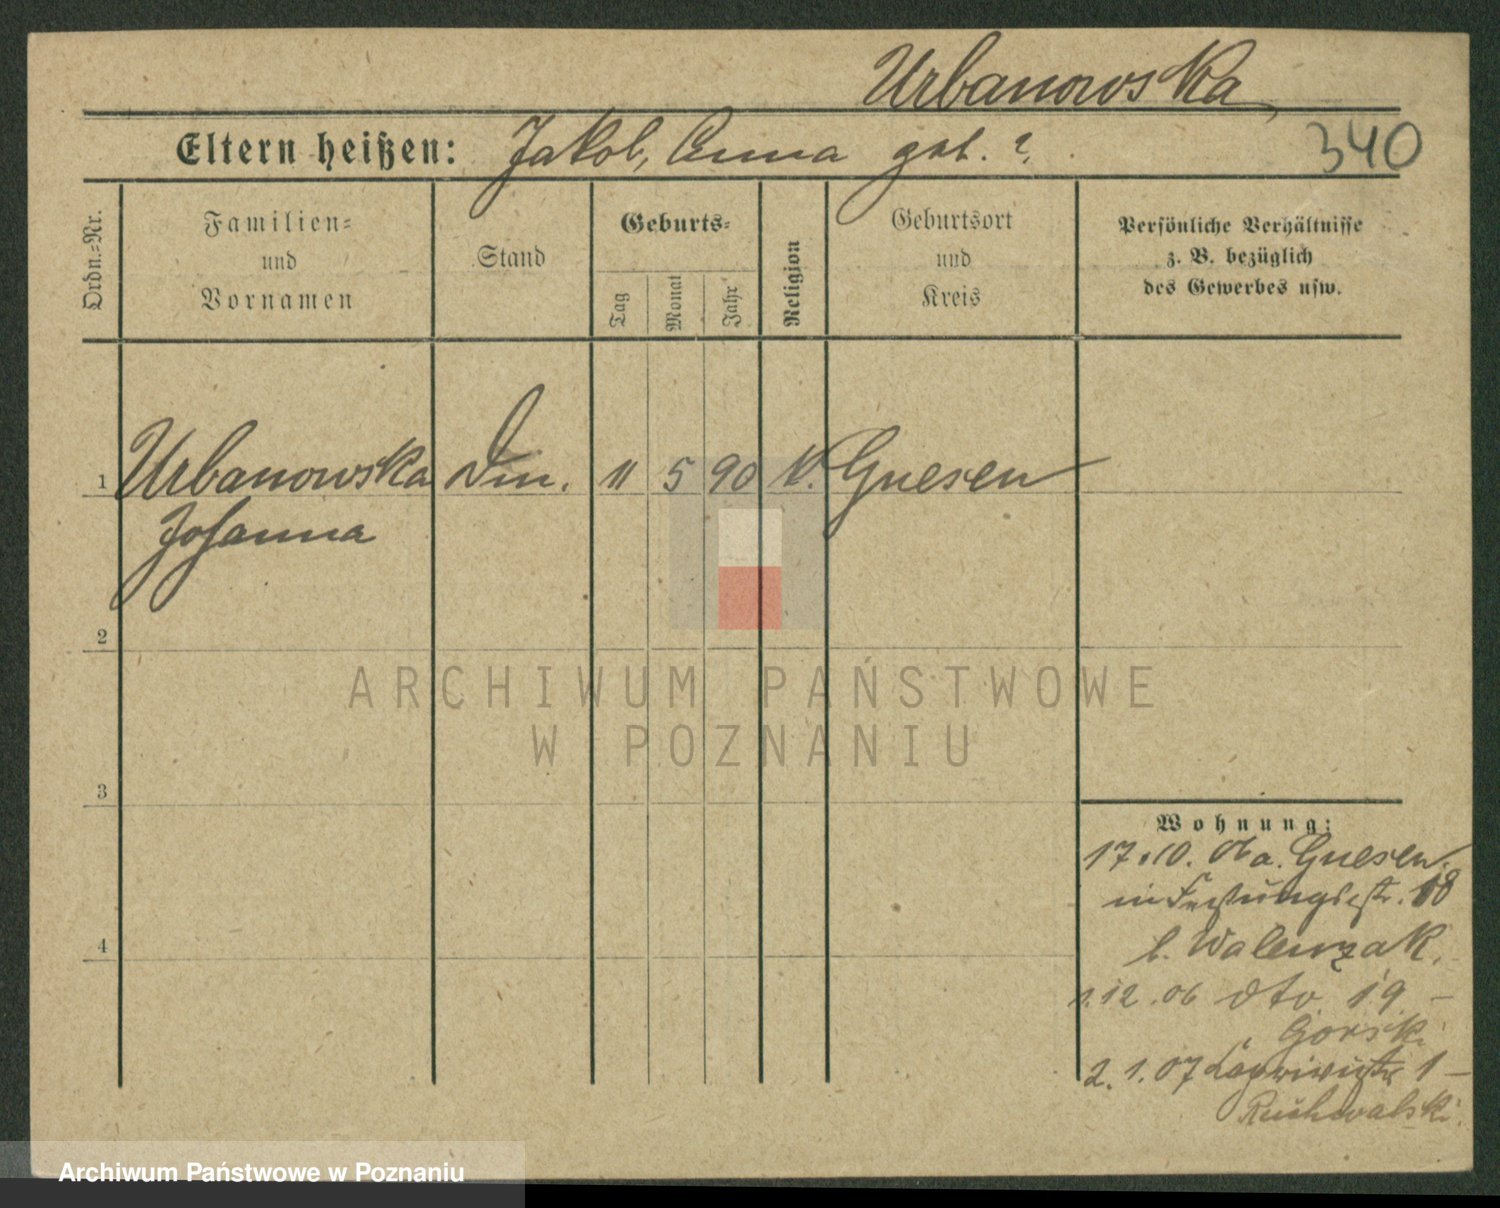 Urbanowska
Eltern heißen: Jakob, Anna geb. ?
340
Ordn.-Nr.
Familien-
und
Vornamen
Stand
Geburts-
Tag
Monat
Jahr
Religion
Geburtsort
und
Kreis
Persönliche Verhältnisse
z. B. bezüglich
des Gewerbes usw.
1 Urbanowska Din. 11 5 90 k. Gnesen
Johanna
2
3
4
Wohnung:
17.10. 06 a. Gnesen
in Festungsstr. 18
b. Walenzak.
1.12.06 dto 19 –
Gorski
2.1.07 Caprivistr 1 –
ARCHIWUM PAŃSTWOWE
W POZNANIU
Archiwum Państwowe w Poznaniu